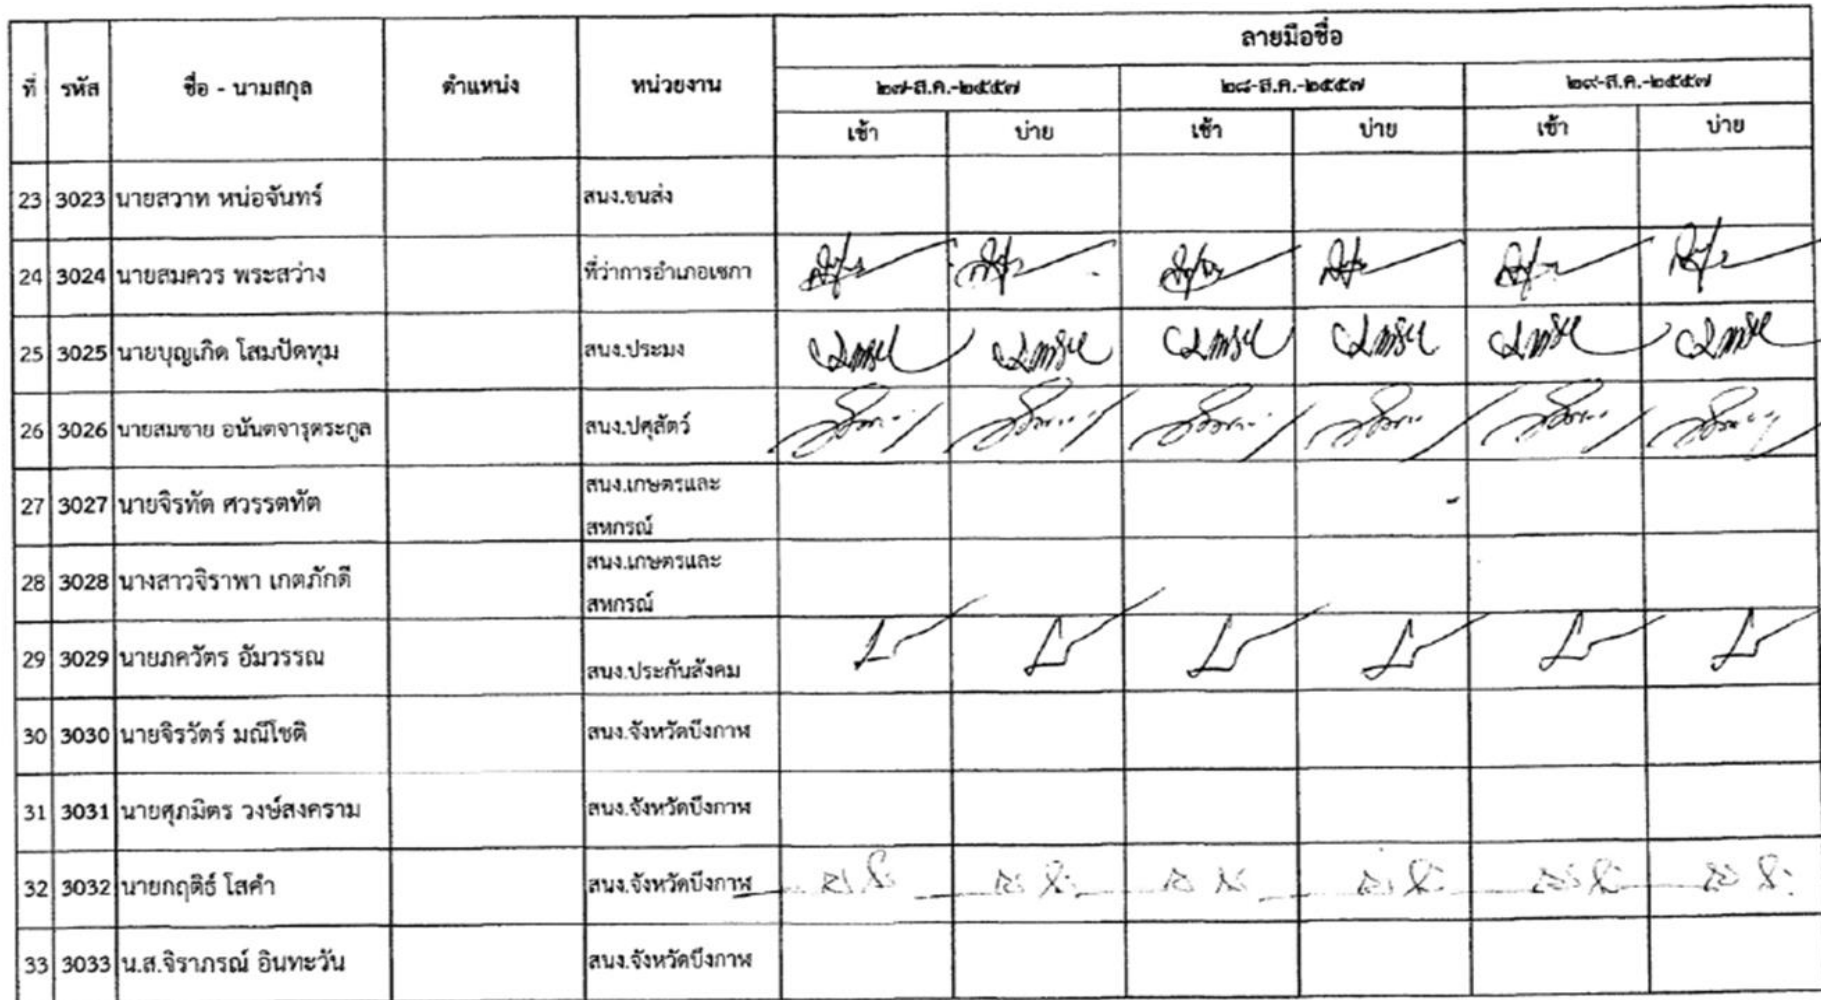 ที่ รหัส ชื่อ - นามสกุล ตำแหน่ง หน่วยงาน ลายมือชื่อ
๒๗-ส.ค.-๒๕๕๗ ๒๘-ส.ค.-๒๕๕๗ ๒๙-ส.ค.-๒๕๕๗
เช้า บ่าย เช้า บ่าย เช้า บ่าย
23 3023 นายสวาท หน่อจันทร์ สนง.ขนส่ง
24 3024 นายสมควร พระสว่าง ที่ว่าการอำเภอเซกา
25 3025 นายบุญเกิด โสมปัดทุม สนง.ประมง
26 3026 นายสมชาย อนันตจารุตระกูล สนง.ปศุสัตว์
27 3027 นายจิรทัต ศวรรตทัต สนง.เกษตรและ
สหกรณ์
28 3028 นางสาวจิราพา เกตภักดี สนง.เกษตรและ
สหกรณ์
29 3029 นายภควัตร อัมวรรณ สนง.ประกันสังคม
30 3030 นายจิรวัตร์ มณีโชติ สนง.จังหวัดบึงกาฬ
31 3031 นายศุภมิตร วงษ์สงคราม สนง.จังหวัดบึงกาฬ
32 3032 นายกฤติธ์ โสคำ สนง.จังหวัดบึงกาฬ
33 3033 น.ส.จิราภรณ์ อินทะวัน สนง.จังหวัดบึงกาฬ